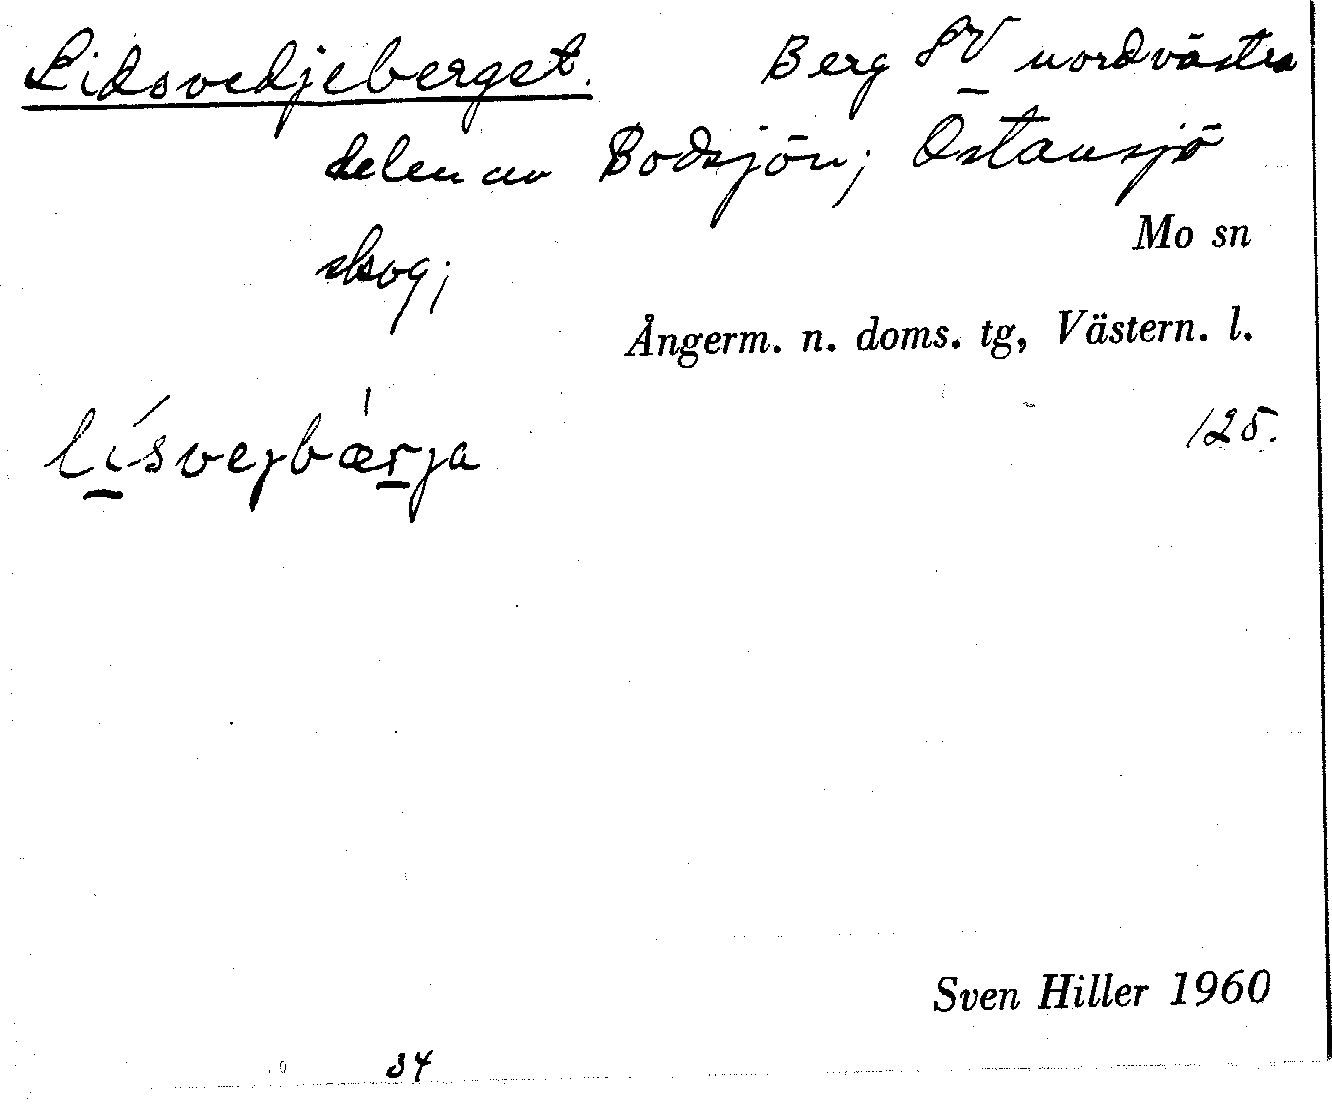 Lidsvedjeberget. Berg SV nordvästra
delen av Bodsjön; Östansjö
skog;
Mo sn
Ångerm. n. doms. tg, Västern. l.
125.
lisvejbærja
Sven Hiller 1960
34